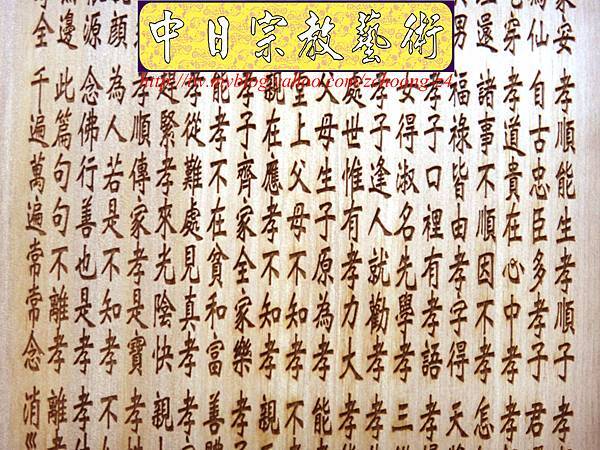 中日宗教藝術
家安 孝順能生孝順子 孝
為仙 自古忠臣多孝子 君
孝道貴在心中孝 孝
還 諸事不順因不孝 怎
男 福祿皆由孝字得 天
孝子口裡有孝語 孝
女得淑名先學孝 三
孝子逢人就勸孝 孝
處世惟有孝力大 孝
父母生子原為孝 能
堂上父母不知孝 不
親在應孝不知孝 親
孝子齊家全家樂 孝
能孝不在貧和富 善
孝從難處見真孝 孝
趕緊孝來光陰快 親
孝順傳家孝是寶 孝
顏 為人若是不知孝 不
源 念佛行善也是孝 孝
邊 此篇句句不離孝 離
全 千遍萬遍常常念 消